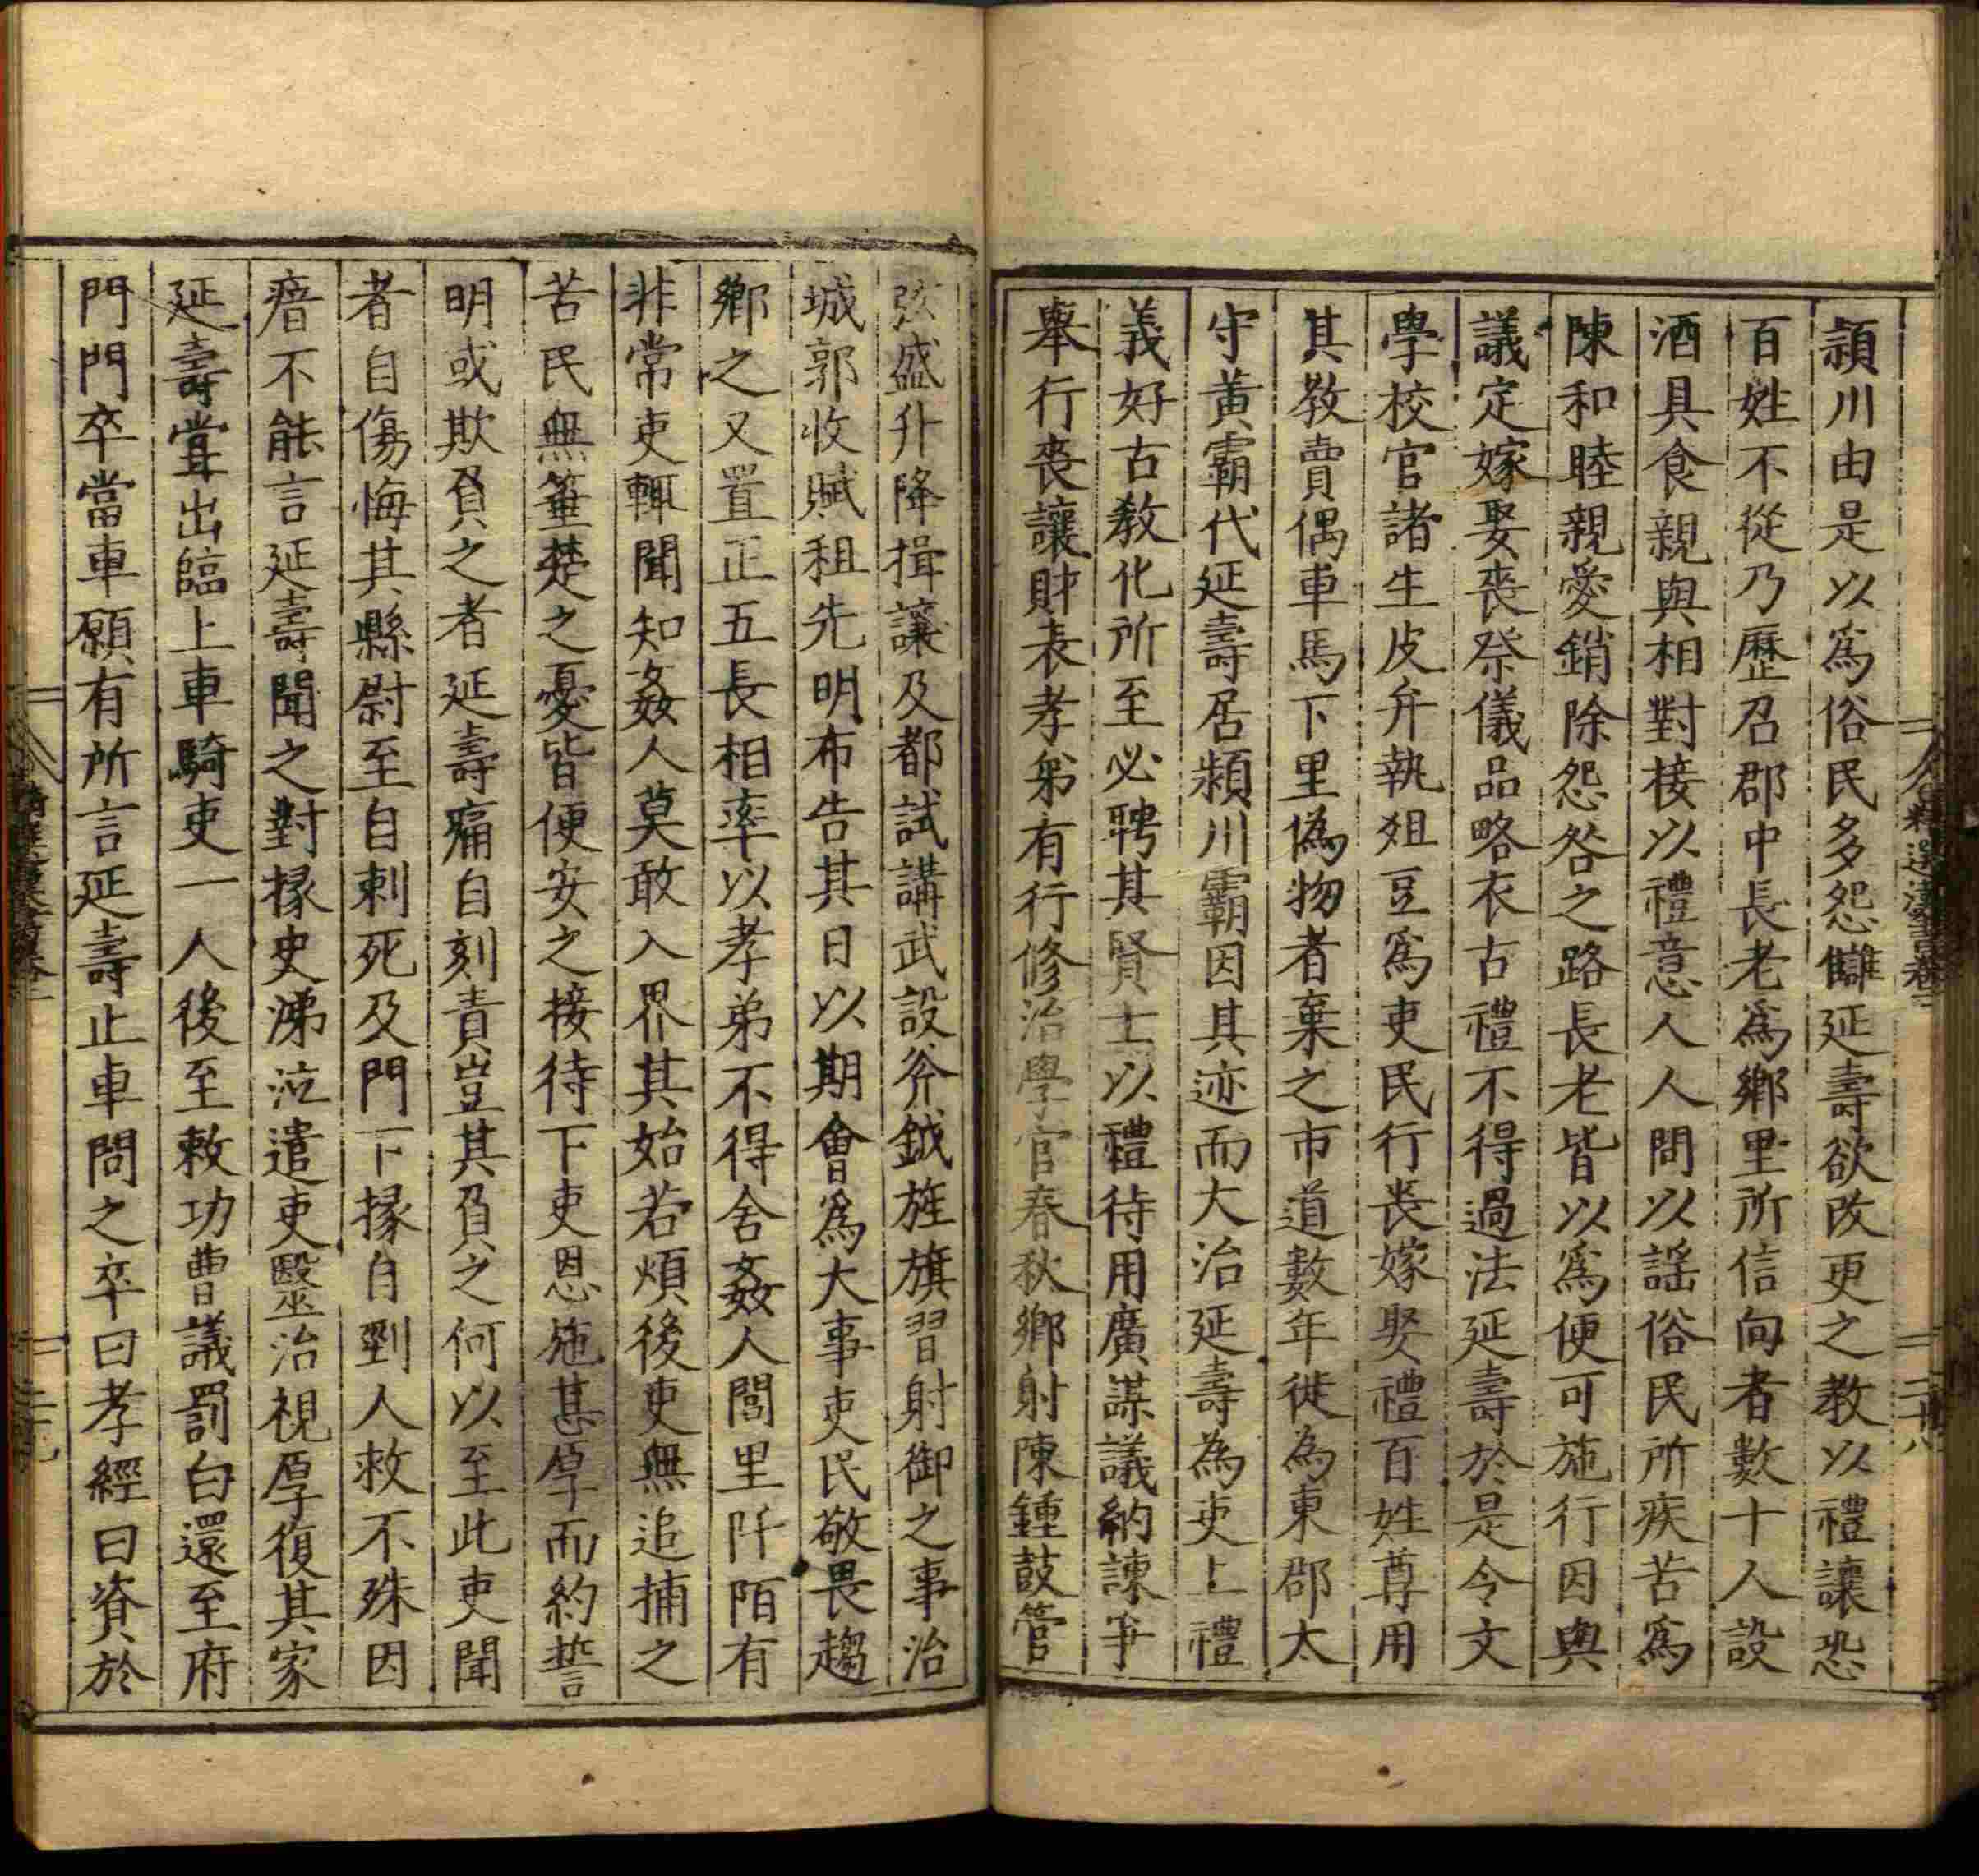 潁川由是以爲俗民多怨讎延壽欲改更之教以禮讓恐
百姓不從乃歷召郡中長老爲鄉里所信向者數十人設
酒具食親與相對接以禮意人人問以謡俗民所疾苦爲
陳和睦親愛銷除怨咎之路長老皆以爲便可施行因與
議定嫁娶喪祭儀品略衣古禮不得過法延壽於是令文
學校官諸生皮弁執俎豆爲吏民行喪嫁娶禮百姓尊用
其教賣偶車馬下里僞物者棄之市道數年徙為東郡太
守黄霸代延壽居潁川霸因其迹而大治延壽為吏上禮
義好古教化所至必聘其賢士以禮待用廣謀議納諫爭
舉行喪讓財表孝弟有行修治學官春秋鄉射陳鍾鼓管
弦盛升降揖讓及都試講武設斧鉞旌旗習射御之事治
城郭收賦租先明布告其日以期會爲大事吏民敬畏趨
鄉之又置正五長相率以孝弟不得舍姦人閭里阡陌有
非常吏輒聞知姦人莫敢入界其始若煩後吏無追捕之
苦民無箠楚之憂皆便安之接待下吏恩施甚厚而約誓
明或欺負之者延壽痛自刻責豈其負之何以至此吏聞
者自傷悔其縣尉至自刺死及門下掾自剄人救不殊因
瘖不能言延壽聞之對掾史涕泣遣吏毉治視厚復其家
延壽嘗出臨上車騎吏一人後至敕功曹議罰白還至府
門門卒當車願有所言延壽止車問之卒曰孝經曰資於
精選漢書卷
二十八
二十九